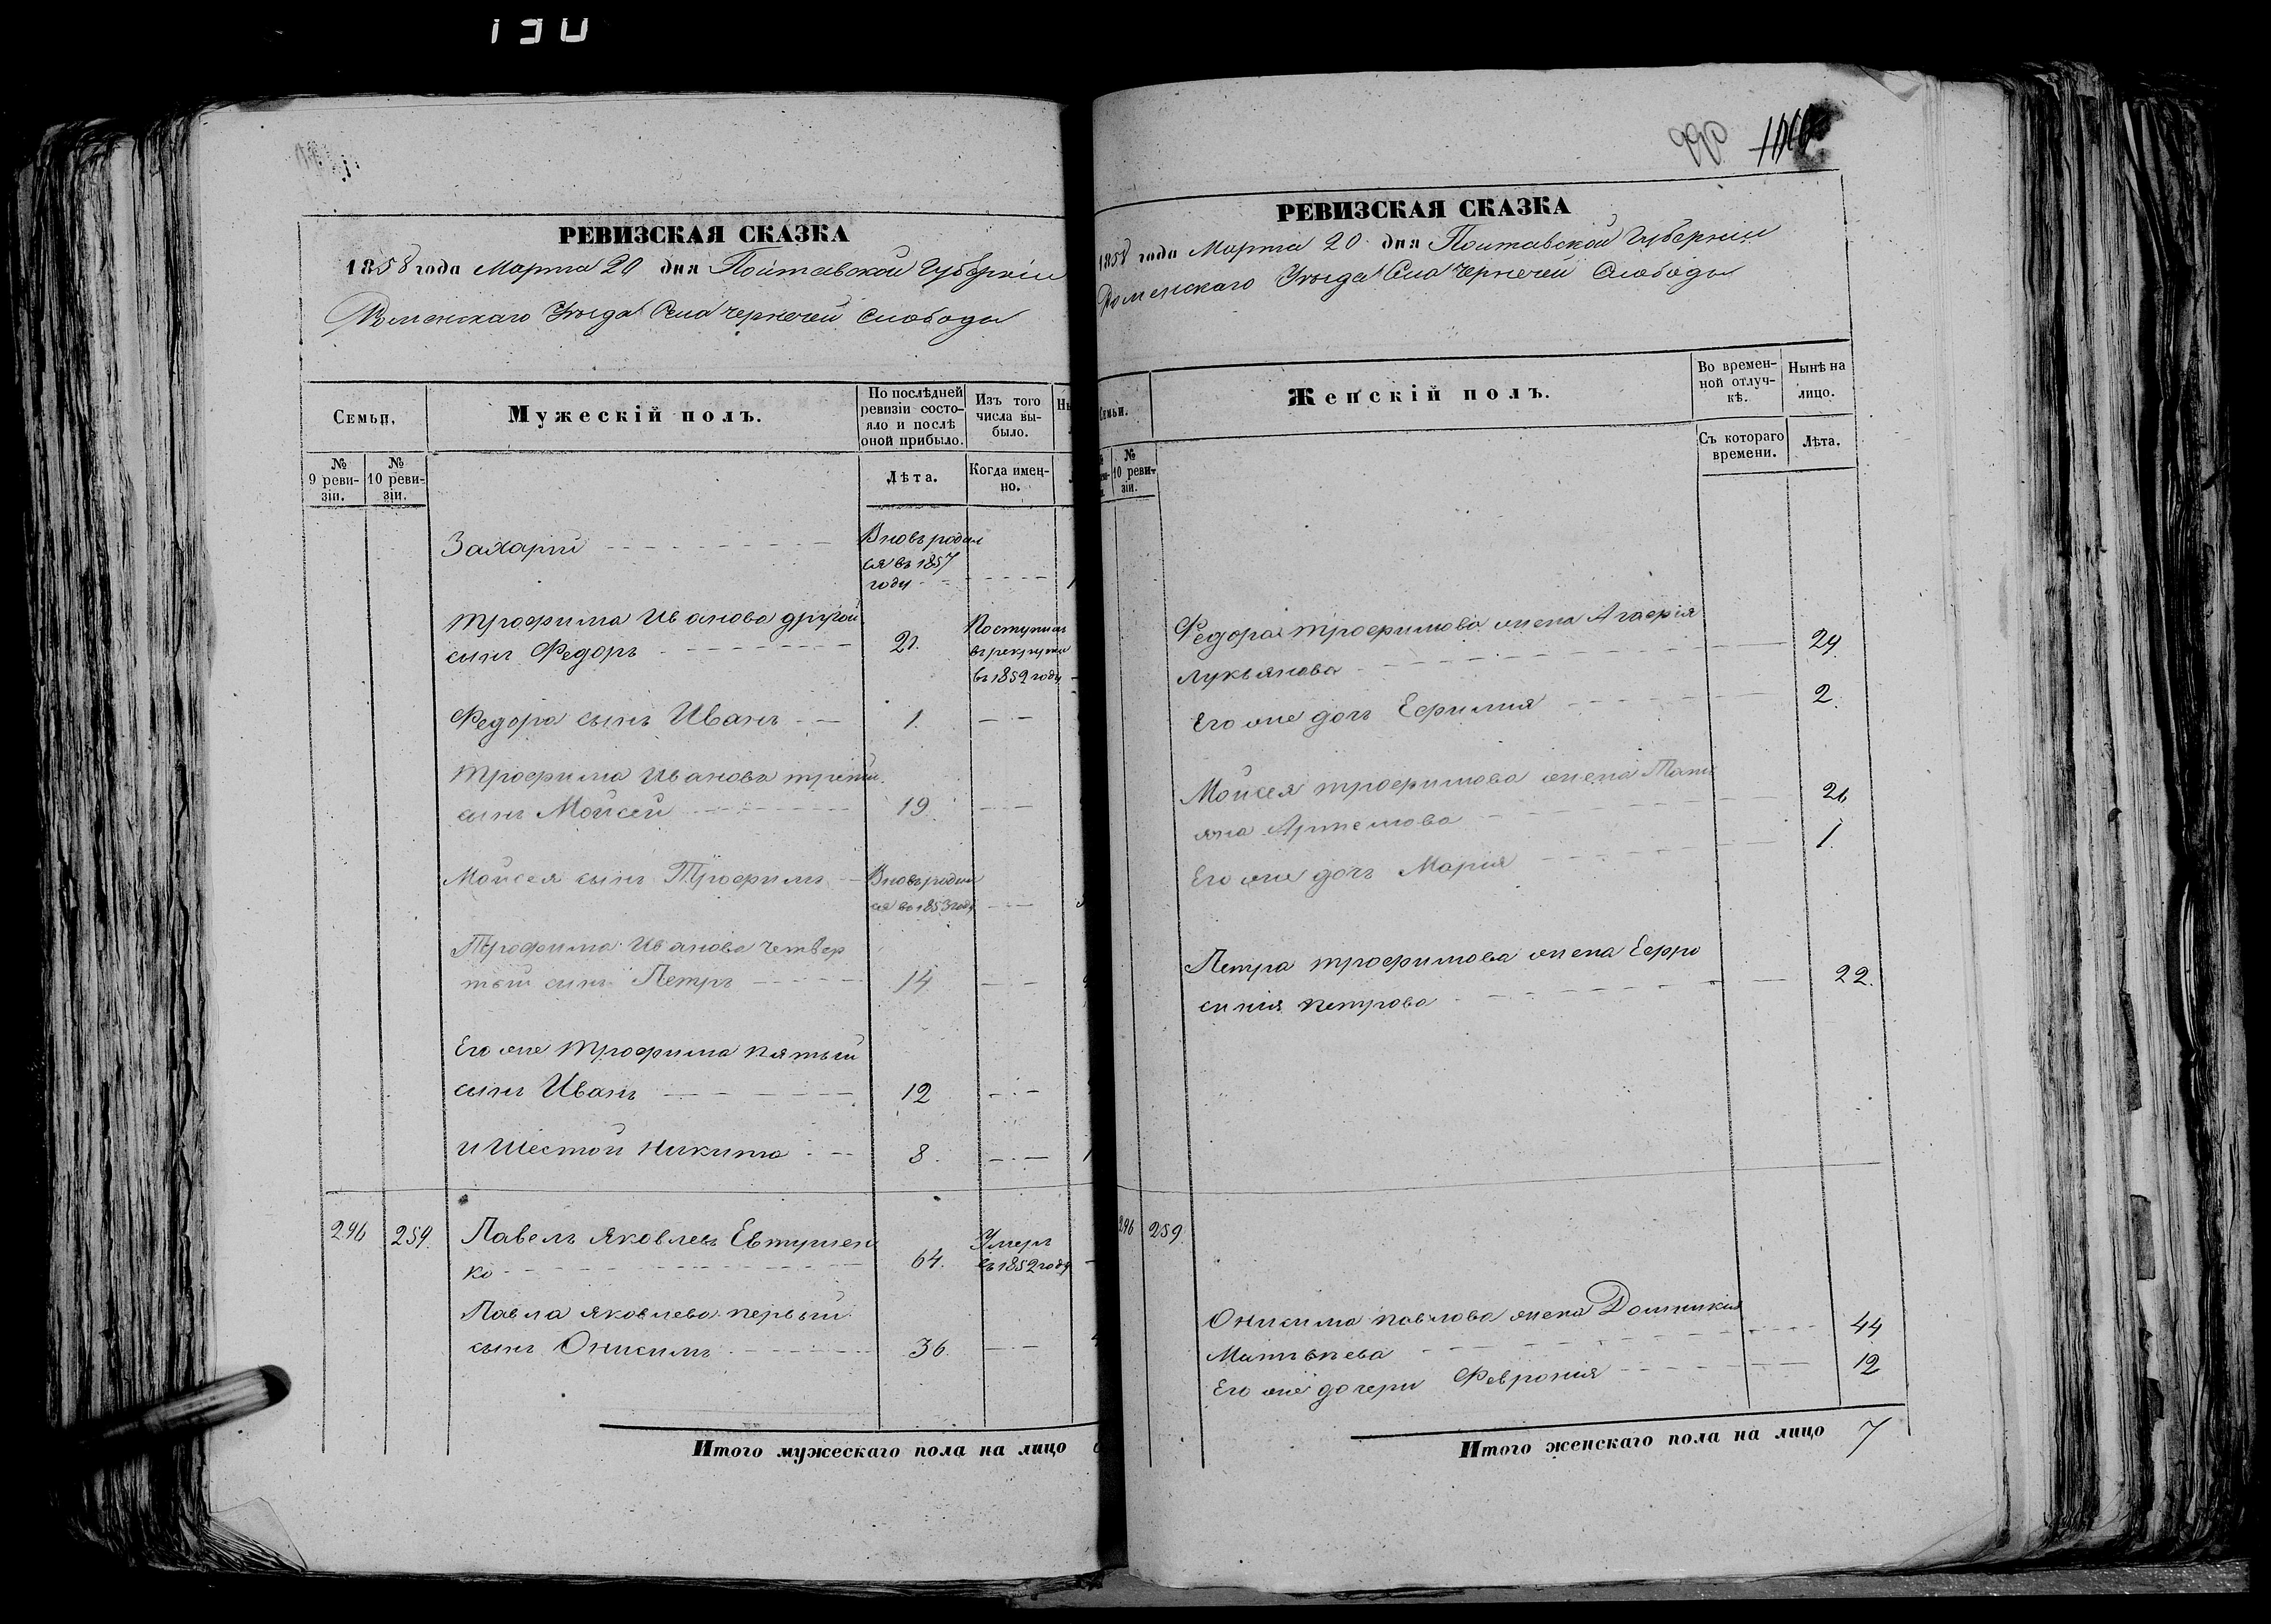 РЕВИЗСКАЯ СКАЗКА
1858 года Марта 20 дня Полтавской Губерніи
Роменскаго Уѣзда Села Чернечей Слободы
Семьи.
Мужескій полъ.
По послѣдней ревизіи состо-
яло и послѣ
оной прибыло.
Изъ того
числа вы-
было.
№
9 реви-
зіи.
№
10 реви-
зіи.
Лѣта.
Когда имен-
но.
Захарій
Вновь родил
ся въ 1857
году
Трофима Иванова другой
сынъ Федоръ
21.
Поступилъ
въ рекруты
въ 1852 году
Федора сынъ Иванъ
1.
Трофима Иванова третій
сынъ Мойсей
19.
Мойсея сынъ Трофимъ
Вновь родил
ся въ 1853 году
Трофима Иванова четвер
тый сынъ Петръ
14
Его же Трофима пятый
сынъ Иванъ
12
и шестой Никита
8.
296
259.
Павелъ Яковлевъ Евтушен
ко
64.
Умеръ
въ 1852 году
Павла Яковлева первый
сынъ Онисимъ
36.
Итого мужескаго пола на лицо
РЕВИЗСКАЯ СКАЗКА
1858 года Марта 20 дня Полтавской Губерніи
Роменскаго Уѣзда Села Чернечей Слободы
Женскій полъ.
Во времен-
ной отлуч-
кѣ.
Нынѣ на
лицо.
№
10 реви-
зіи.
Съ котораго
времени.
Лѣта.
Федора Трофимова жена Агафія
Лукьянова
29.
Его же дочь Ефимия
2.
Мойсея Трофимова жена Тати
яна Артемова
26
Его же дочь Марія
1.
Петра Трофимова жена Евфро
синія Петрова
22.
296
259.
Онисима Павлова жена Домникия
Матвѣева
44
Его же дочери Феврония
12
Итого женскаго пола на лицо 7